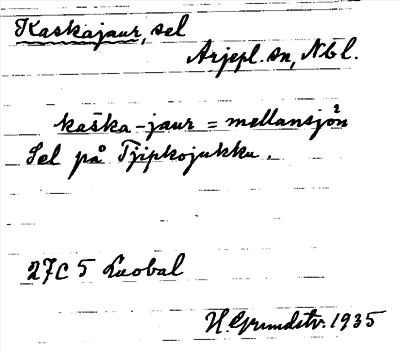 Kaskajaur, sel
Arjepl. sn, Nbl.
kaška-jaur = mellansjön
Sel på Tjipkojukku.
27C 5 Luobal
H. Grundstr. 1935